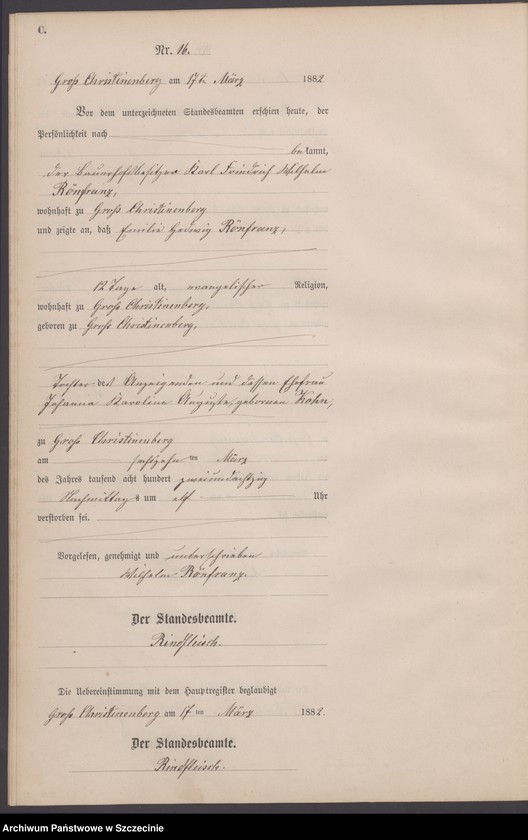 C.
Nr. 16.
Groß Christinenberg am 17ten März 1882
Vor dem unterzeichneten Standesbeamten erschien heute, der
Persönlichkeit nach
bekannt,
der Bauerhofsbesitzer Karl Friedrich Wilhelm
Rönfranz,
wohnhaft zu Groß Christinenberg
und zeigte an, daß Emilie Hedwig Rönfranz,
12 Tage alt, evangelischer Religion,
wohnhaft zu Groß Christinenberg,
geboren zu Groß Christinenberg,
Tochter des Anzeigenden und dessen Ehefrau
Johanna Karoline Auguste, geborenen Kohn,
zu Groß Christinenberg
am sechzehnten März
des Jahres tausend acht hundert zweiundachtzig
Nachmittags um elf Uhr
verstorben sei.
Vorgelesen, genehmigt und unterschrieben
Wilhelm Rönfranz.
Der Standesbeamte.
Rindfleisch.
Die Uebereinstimmung mit dem Hauptregister beglaubigt
Groß Christinenberg am 17ten März 1882.
Der Standesbeamte.
Rindfleisch.
Archiwum Państwowe w Szczecinie